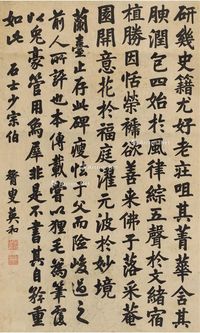 研幾史籍尤好老莊咀其菁華含其
腴潤包四始於風律綜五聲於文緒宿
植勝因恬榮褫欲善來佛子落采菴
園開意花於福庭濯元波於妙境
蘭臺止存此碑瘦怯于父而險峻過之
前人所許也本傳載嘗以狸毛為筆覆
以兔豪管用象犀非是不書其自錚重
如此
石士少宗伯
瞀叟英和